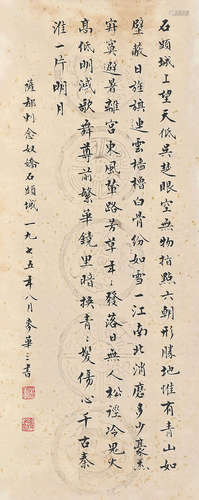 石頭城上望天低吳楚眼空無物指點六朝形勝地惟有青山如
壁蔽日旌旗連雲檣櫓白骨份如雪一江南北消磨多少豪杰
寂寞避暑離宮東風輦路芳草年年發落日無人松逕冷鬼火
高低明滅歌舞尊前繁華鏡里暗換青青髮傷心千古秦
淮一片明月
薩都剌念奴嬌石頭城一九七五年八月麥華三書